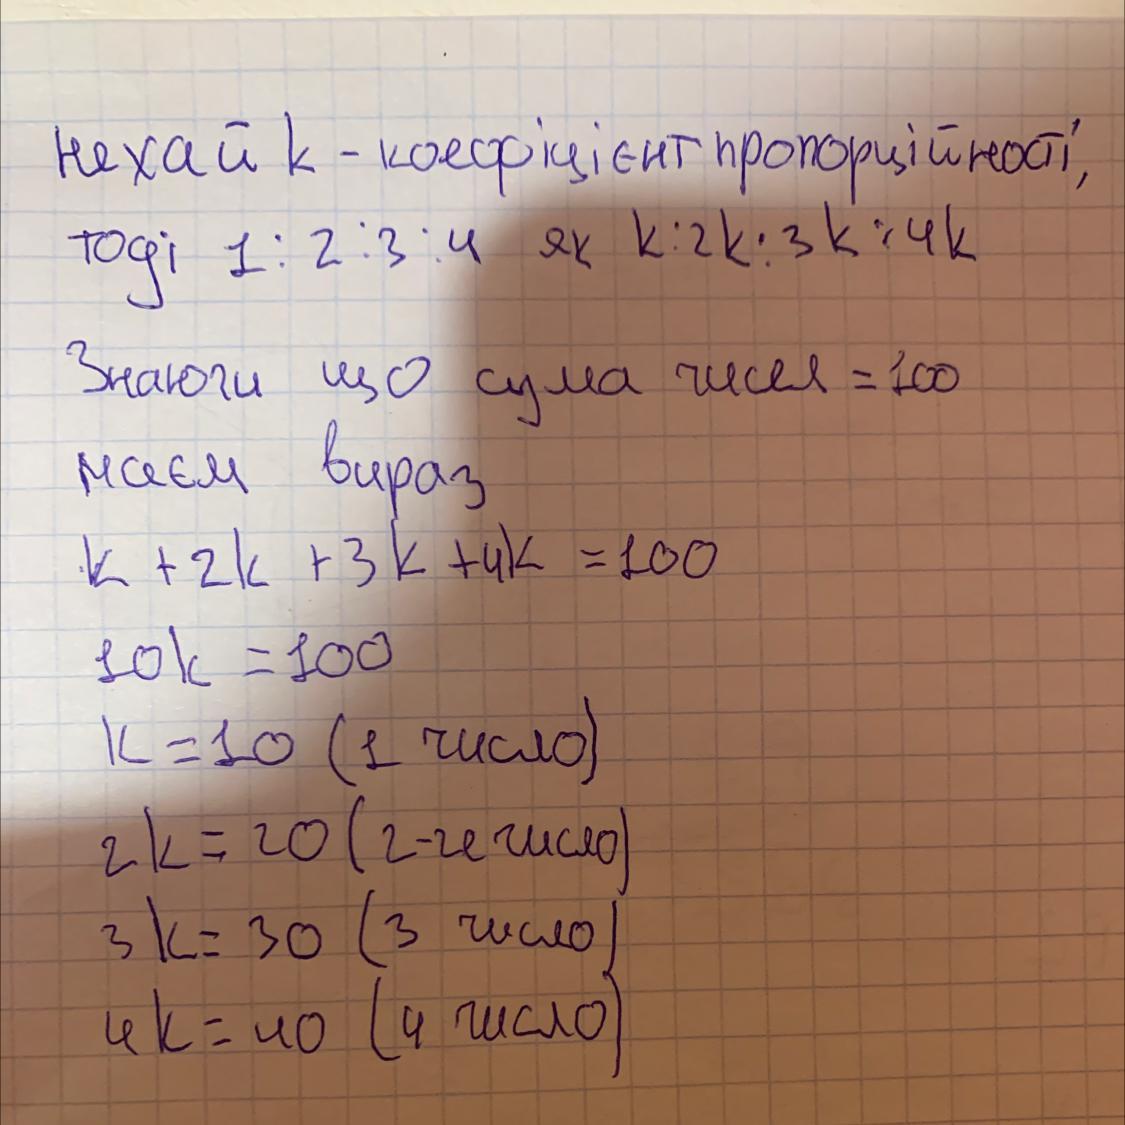 нехай k - коефіцієнт пропорційності,
тоді 1:2:3:4 як k:2k:3k:4k
Знаючи що сума чисел = 100
маєм вираз
k + 2k + 3k + 4k = 100
10k = 100
k = 10 (1 число)
2k = 20 (2-ге число)
3k = 30 (3 число)
4k = 40 (4 число)